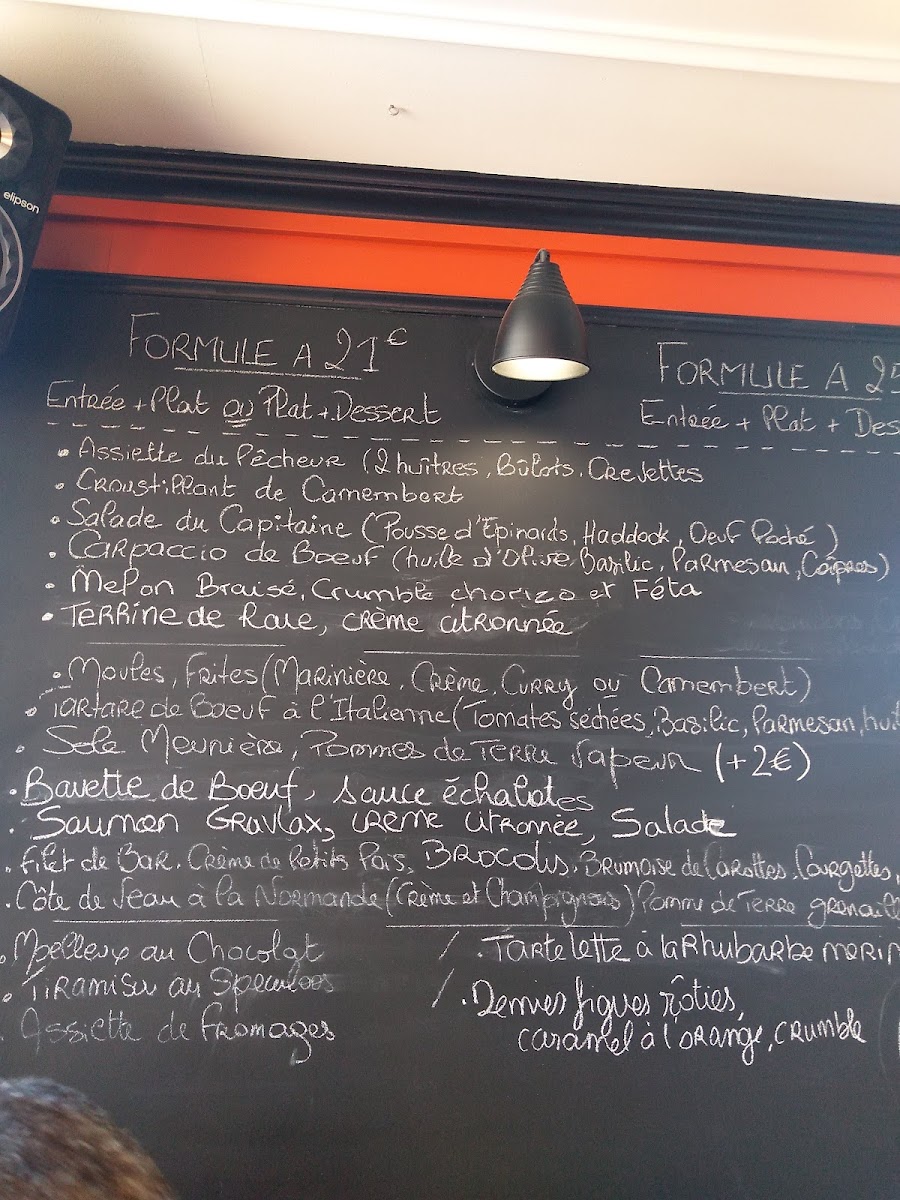 elipson
FORMULE A 21€
Entrée + Plat ou Plat + Dessert
FORMULE A 25
Entrée + Plat + Des
• Assiette du Pêcheur (2 huîtres, Bûlots, Crevettes
• Croustillant de Camembert
• Salade du Capitaine (Pousse d'Epinards, Haddock, Oeuf Poché)
• Carpaccio de Boeuf (huile d'Olive, Basilic, Parmesan, Câpres)
• Melon Braisé, Crumble chorizo et Féta
• Terrine de Raie, crème citronnée
• Moules, Frites (Marinière, Crème, Curry ou Camembert)
• Tartare de Boeuf à l'Italienne (Tomates séchées, Basilic, Parmesan, huil
• Sole Meunière, Pommes de Terre Vapeur (+2€)
• Bavette de Boeuf, sauce échalotes
• Saumon Gravlax, crème citronnée, Salade
• Filet de Bar, Crème de Petits Pois, Brocolis, Brunoise de Carottes, Courgettes,
• Côte de Veau à la Normande (Crème et Champignons) Pomme de Terre grenaill
• Moelleux au Chocolat
/ • Tartelette à la Rhubarbe merin
• Tiramisu au Speculoos
/ • Demies figues rôties,
caramel à l'orange, crumble
Assiette de Fromages